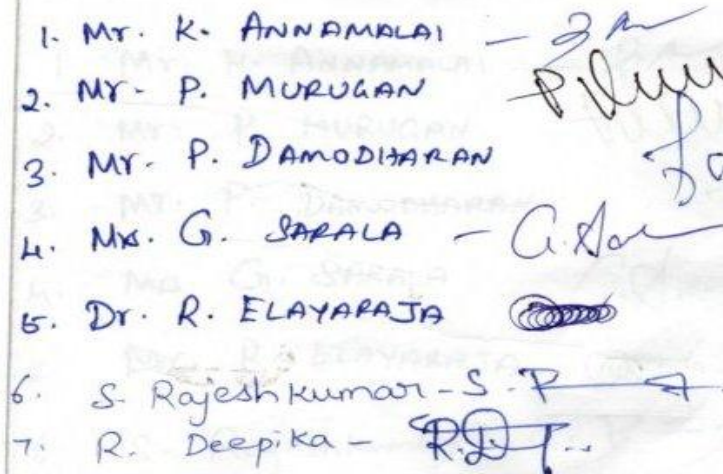 1. Mr. K. ANNAMALAI -
2. Mr. P. MURUGAN
3. Mr. P. DAMODHARAN
4. Ms. G. SARALA - G. Sar
5. Dr. R. ELAYARAJA
6. S. Rajesh Kumar - S. R
7. R. Deepika - R.D